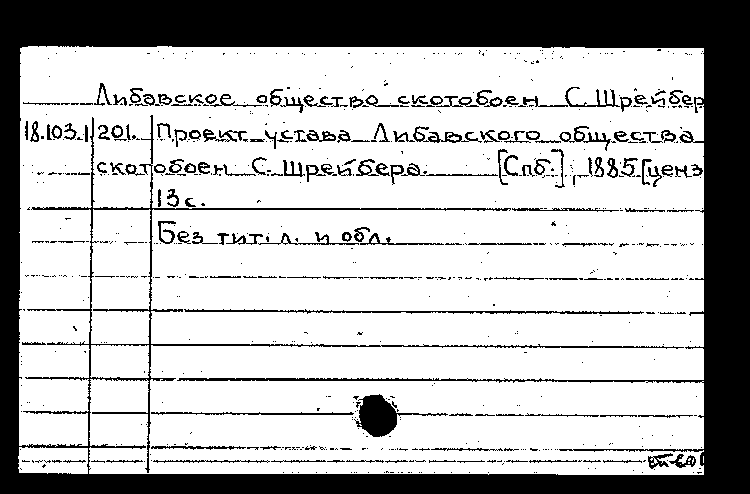 Либавское общество скотобоен С. Шрейбер
18.103.1 201. Проект устава Либавского общества
скотобоен С. Шрейбера. [Спб.], 1885 [ценз
13 с.
Без тит. л. и обл.